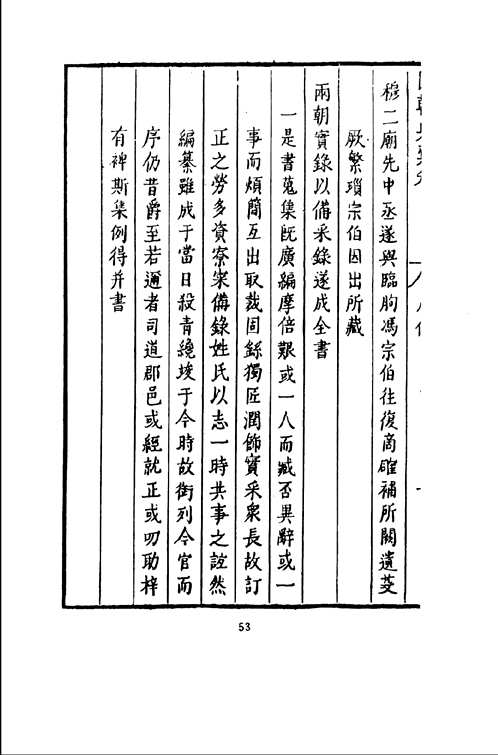 穆二廟先中丞遂與臨朐馮宗伯往復商確補所闕遺芟
厥繁瑣宗伯因出所藏
兩朝實錄以備采錄遂成全書
一是書蒐集既廣編摩倍艱或一人而臧否異辭或一
事而煩簡互出取裁固繇獨匠潤飾實采衆長故訂
正之勞多資寮寀備錄姓氏以志一時共事之誼然
編纂雖成于當日殺青纔竣于今時故銜列今官而
序仍昔爵至若邇者司道郡邑或經就正或叨助梓
有裨斯集例得并書
53